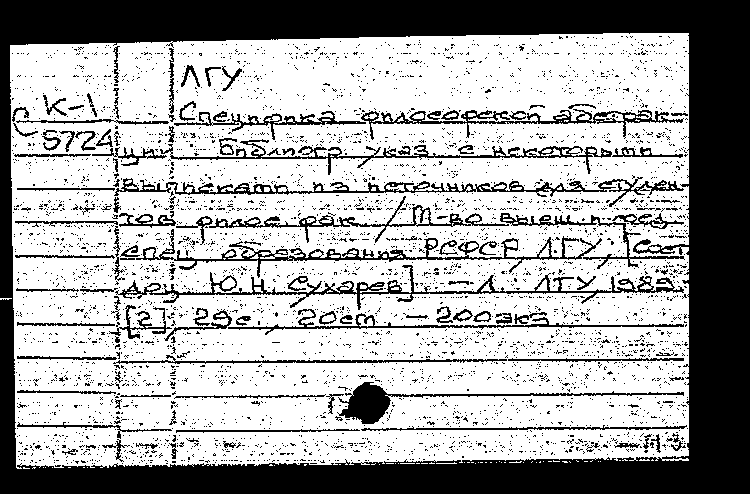 ЛГУ
С К-1
5724
Специфика философской абстрак-
ции : Библиогр. указ. с некоторыми
выписками из источников для студен-
тов филос. фак. / М-во высш. и сред.
спец. образования РСФСР, ЛГУ; [Сост.
доц. Ю.Н. Сухарев]. — Л. : ЛГУ, 1989.
[2], 29с. ; 20см. — 200экз